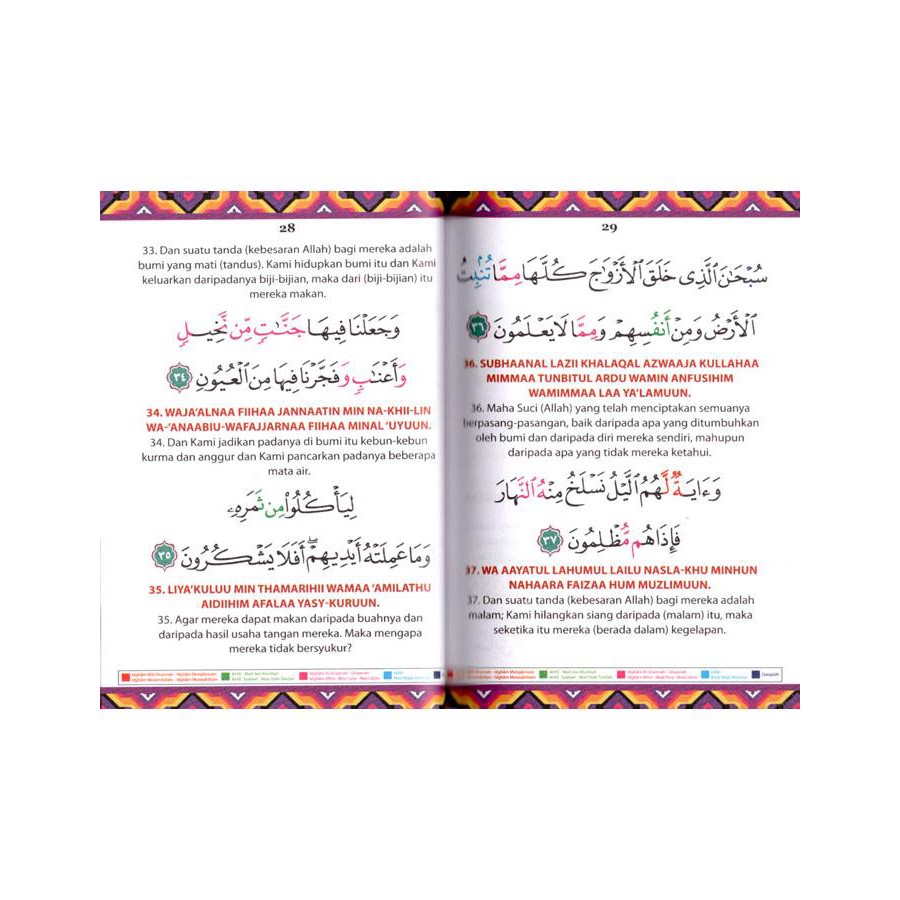 28
33. Dan suatu tanda (kebesaran Allah) bagi mereka adalah
bumi yang mati (tandus). Kami hidupkan bumi itu dan Kami
keluarkan daripadanya biji-bijian, maka dari (biji-bijian) itu
mereka makan.
وَجَعَلْنَا فِيهَا جَنَّٰتٍ مِّن نَّخِيلٍ
وَأَعْنَٰبٍ وَفَجَّرْنَا فِيهَا مِنَ ٱلْعُيُونِ ٣٤
34. WAJA'ALNAA FIIHAA JANNAATIN MIN NA-KHII-LIN
WA-'ANAABIU-WAFAJJARNAA FIIHAA MINAL 'UYUUN.
34. Dan Kami jadikan padanya di bumi itu kebun-kebun
kurma dan anggur dan Kami pancarkan padanya beberapa
mata air.
لِيَأْكُلُوا۟ مِن ثَمَرِهِۦ
وَمَا عَمِلَتْهُ أَيْدِيهِمْ ۖ أَفَلَا يَشْكُرُونَ ٣٥
35. LIYA'KULUU MIN THAMARIHII WAMAA 'AMILATHU
AIDIIHIM AFALAA YASY-KURUUN.
35. Agar mereka dapat makan daripada buahnya dan
daripada hasil usaha tangan mereka. Maka mengapa
mereka tidak bersyukur?
29
سُبْحَٰنَ ٱلَّذِى خَلَقَ ٱلْأَزْوَٰجَ كُلَّهَا مِمَّا تُنۢبِتُ
ٱلْأَرْضُ وَمِنْ أَنفُسِهِمْ وَمِمَّا لَا يَعْلَمُونَ ٣٦
36. SUBHAANAL LAZII KHALAQAL AZWAAJA KULLAHAA
MIMMAA TUNBITUL ARDU WAMIN ANFUSIHIM
WAMIMMAA LAA YA'LAMUUN.
36. Maha Suci (Allah) yang telah menciptakan semuanya
berpasang-pasangan, baik daripada apa yang ditumbuhkan
oleh bumi dan daripada diri mereka sendiri, mahupun
daripada apa yang tidak mereka ketahui.
وَءَايَةٌ لَّهُمُ ٱلَّيْلُ نَسْلَخُ مِنْهُ ٱلنَّهَارَ
فَإِذَا هُم مُّظْلِمُونَ ٣٧
37. WA AAYATUL LAHUMUL LAILU NASLA-KHU MINHUN
NAHAARA FAIZAA HUM MUZLIMUUN.
37. Dan suatu tanda (kebesaran Allah) bagi mereka adalah
malam; Kami hilangkan siang daripada (malam) itu, maka
seketika itu mereka (berada dalam) kegelapan.
Qalqalah